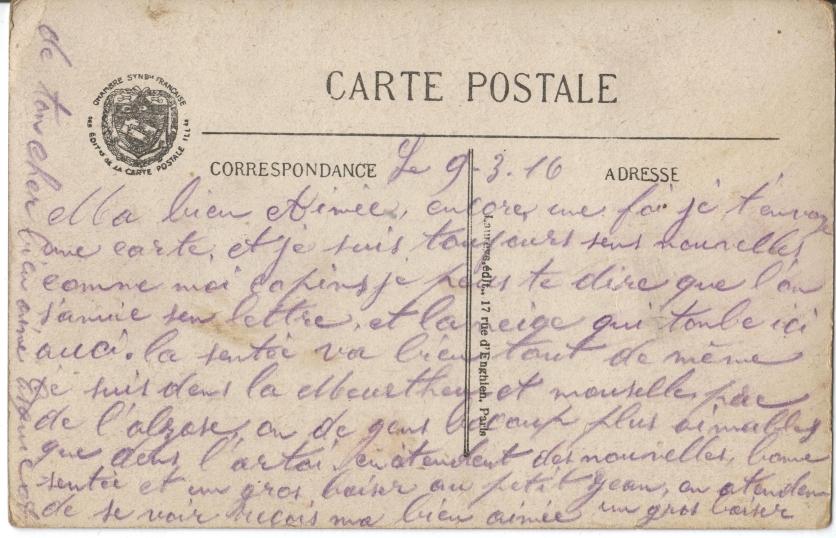 CARTE POSTALE
CHAMBRE SYNDle FRANÇAISE
DES ÉDITrs DE LA CARTE POSTALE ILLée
CORRESPONDANCE
ADRESSE
Le 9-3.16
Ma bien Aimée, encore une foi je t'envoye
une carte, et je suis toujours sens nouvelles
comme moi copins je peus te dire que l'on
s'annuie sen lettre, et la neige qui tonbe ici
auci. la sentée va bien tout de même
je suis dens la Meurthe et mouselle près
de l'alzase, on de gens bocoup plus aimables
que dens l'artoi. en atendent des nouvelles, bonne
sentée et un gros baiser au petit Jean, en atendent
de se voir reçois ma bien aimée un gros baiser
de ton cher bien aimé
Laureys, édit., 17 rue d'Enghien, Paris